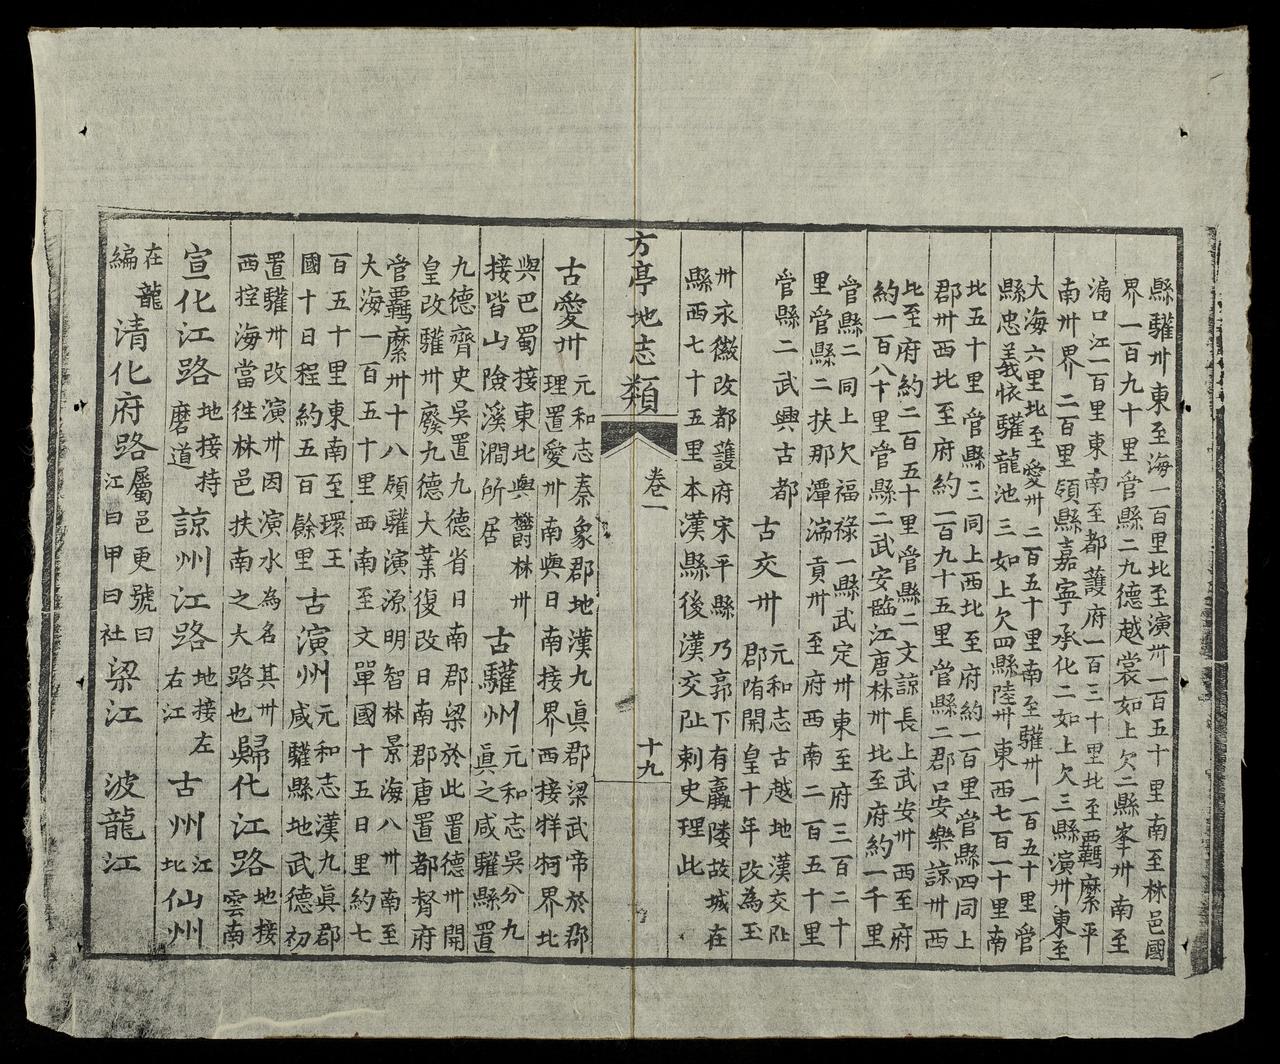 縣驩州東至海一百里北至演州一百五十里南至林邑國
界一百九十里管縣二九德越裳如上欠二縣峯州南至
漏口江一百里東南至都護府一百三十里北至羈縻平
南州界二百里領縣嘉寧承化二如上欠三縣演州東至
大海六里北至愛州二百五十里南至驩州一百五十里管
縣忠義懷驩龍池三如上欠四縣陸州東西七百一十里南
北五十里管縣三同上西北至府約一百里管縣四同上
郡州西北至府約一百九十五里管縣二郡口安樂諒州西
北至府約二百五十里管縣二文諒長上武安州西至府
約一百八十里管縣二武安臨江唐林州北至府約一千里
管縣二同上欠福祿一縣武定州東至府三百二十
里管縣二扶那潭湍貢州至府西南二百五十里
管縣二武興古都
古交州
元和志古越地漢交阯
郡隋開皇十年改為玉
州永徽改都護府宋平縣乃郭下有羸陵故城在
縣西七十五里本漢縣後漢交阯刺史理此
方亭地志類
卷一
十九
古愛州
元和志秦象郡地漢九眞郡梁武帝於郡
理置愛州南與日南接界西接牂牁界北
與巴蜀接東北與欝林州
接皆山險溪澗所居
古驩州
元和志吳分九
眞之咸驩縣置
九德齊史吳置九德省日南郡梁於此置德州開
皇改驩州廢九德大業復改日南郡唐置都督府
管羈縻州十八領驩演源明智林景海八州南至
大海一百五十里西南至文單國十五日里約七
百五十里東南至環王
國十日程約五百餘里
古演州
元和志漢九眞郡
咸驩縣地武德初
置驩州改演州因演水為名其州
西控海當徃林邑扶南之大路也
歸化江路
地接
雲南
宣化江路
地接持
磨道
諒州江路
地接左
右江
古州
江
北
仙州
在龍
編
清化府路
屬邑更號曰
江曰甲曰社
梁江
波龍江